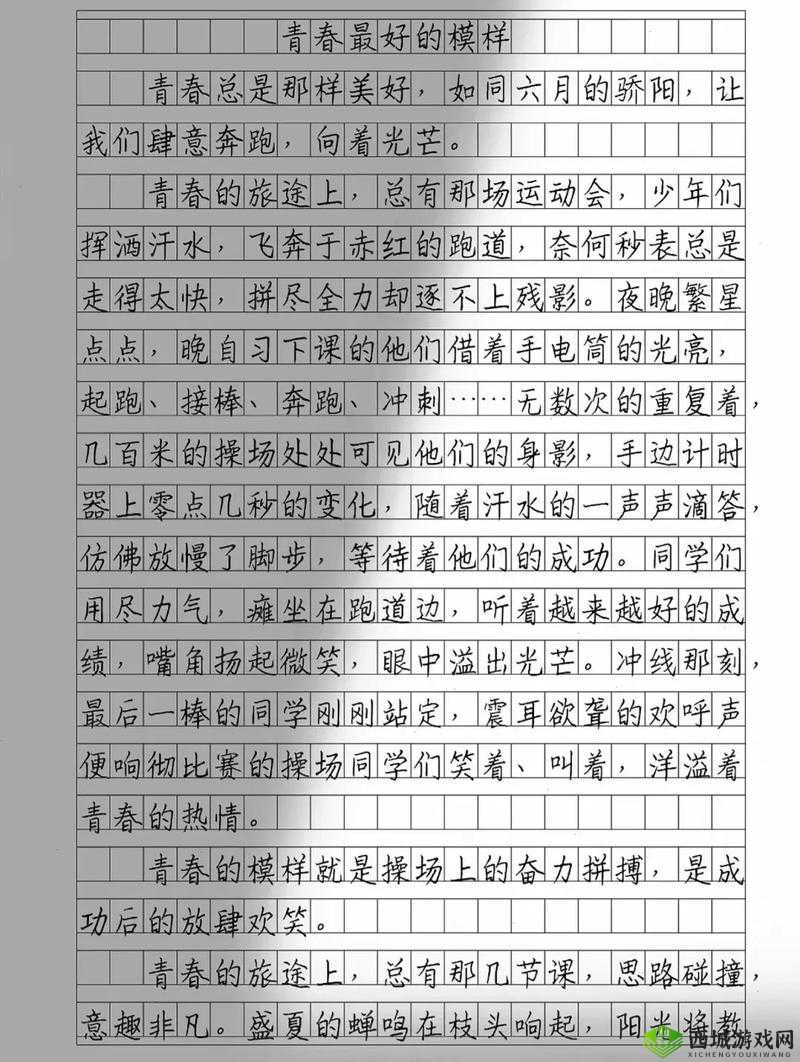 青春最好的模样
青春总是那样美好，如同六月的骄阳，让
我们肆意奔跑，向着光芒。
青春的旅途上，总有那场运动会，少年们
挥洒汗水，飞奔于赤红的跑道，奈何秒表总是
走得太快，拼尽全力却逐不上残影。夜晚繁星
点点，晚自习下课的他们借着手电筒的光亮，
起跑、接棒、奔跑、冲刺……无数次的重复着，
几百米的操场处处可见他们的身影，手边计时
器上零点几秒的变化，随着汗水的一声声滴答，
仿佛放慢了脚步，等待着他们的成功。同学们
用尽力气，瘫坐在跑道边，听着越来越好的成
绩，嘴角扬起微笑，眼中溢出光芒。冲线那刻，
最后一棒的同学刚刚站定，震耳欲聋的欢呼声
便响彻比赛的操场同学们笑着、叫着，洋溢着
青春的热情。
青春的模样就是操场上的奋力拼搏，是成
功后的放肆欢笑。
青春的旅途上，总有那几节课，思路碰撞，
意趣非凡。盛夏的蝉鸣在枝头响起，阳光将教
西城游戏网
XICHENGYOUXIWANG